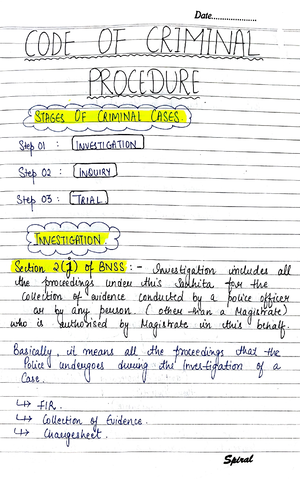 Date....................
CODE OF CRIMINAL
PROCEDURE
STAGES OF CRIMINAL CASES
Step 01 : INVESTIGATION
Step 02 : INQUIRY
Step 03 : TRIAL
INVESTIGATION
Section 2(j) of BNSS : - Investigation includes all
the proceedings under this Sanhita for the
collection of evidence conducted by a police officer
or by any person. (other than a Magistrate)
who is authorised by Magistrate in this behalf.
Basically, it means all the proceedings that the
Police undergoes during the Investigation of a
Case.
↳ FIR.
↳ Collection of Evidence.
↳ Chargesheet.
Spiral